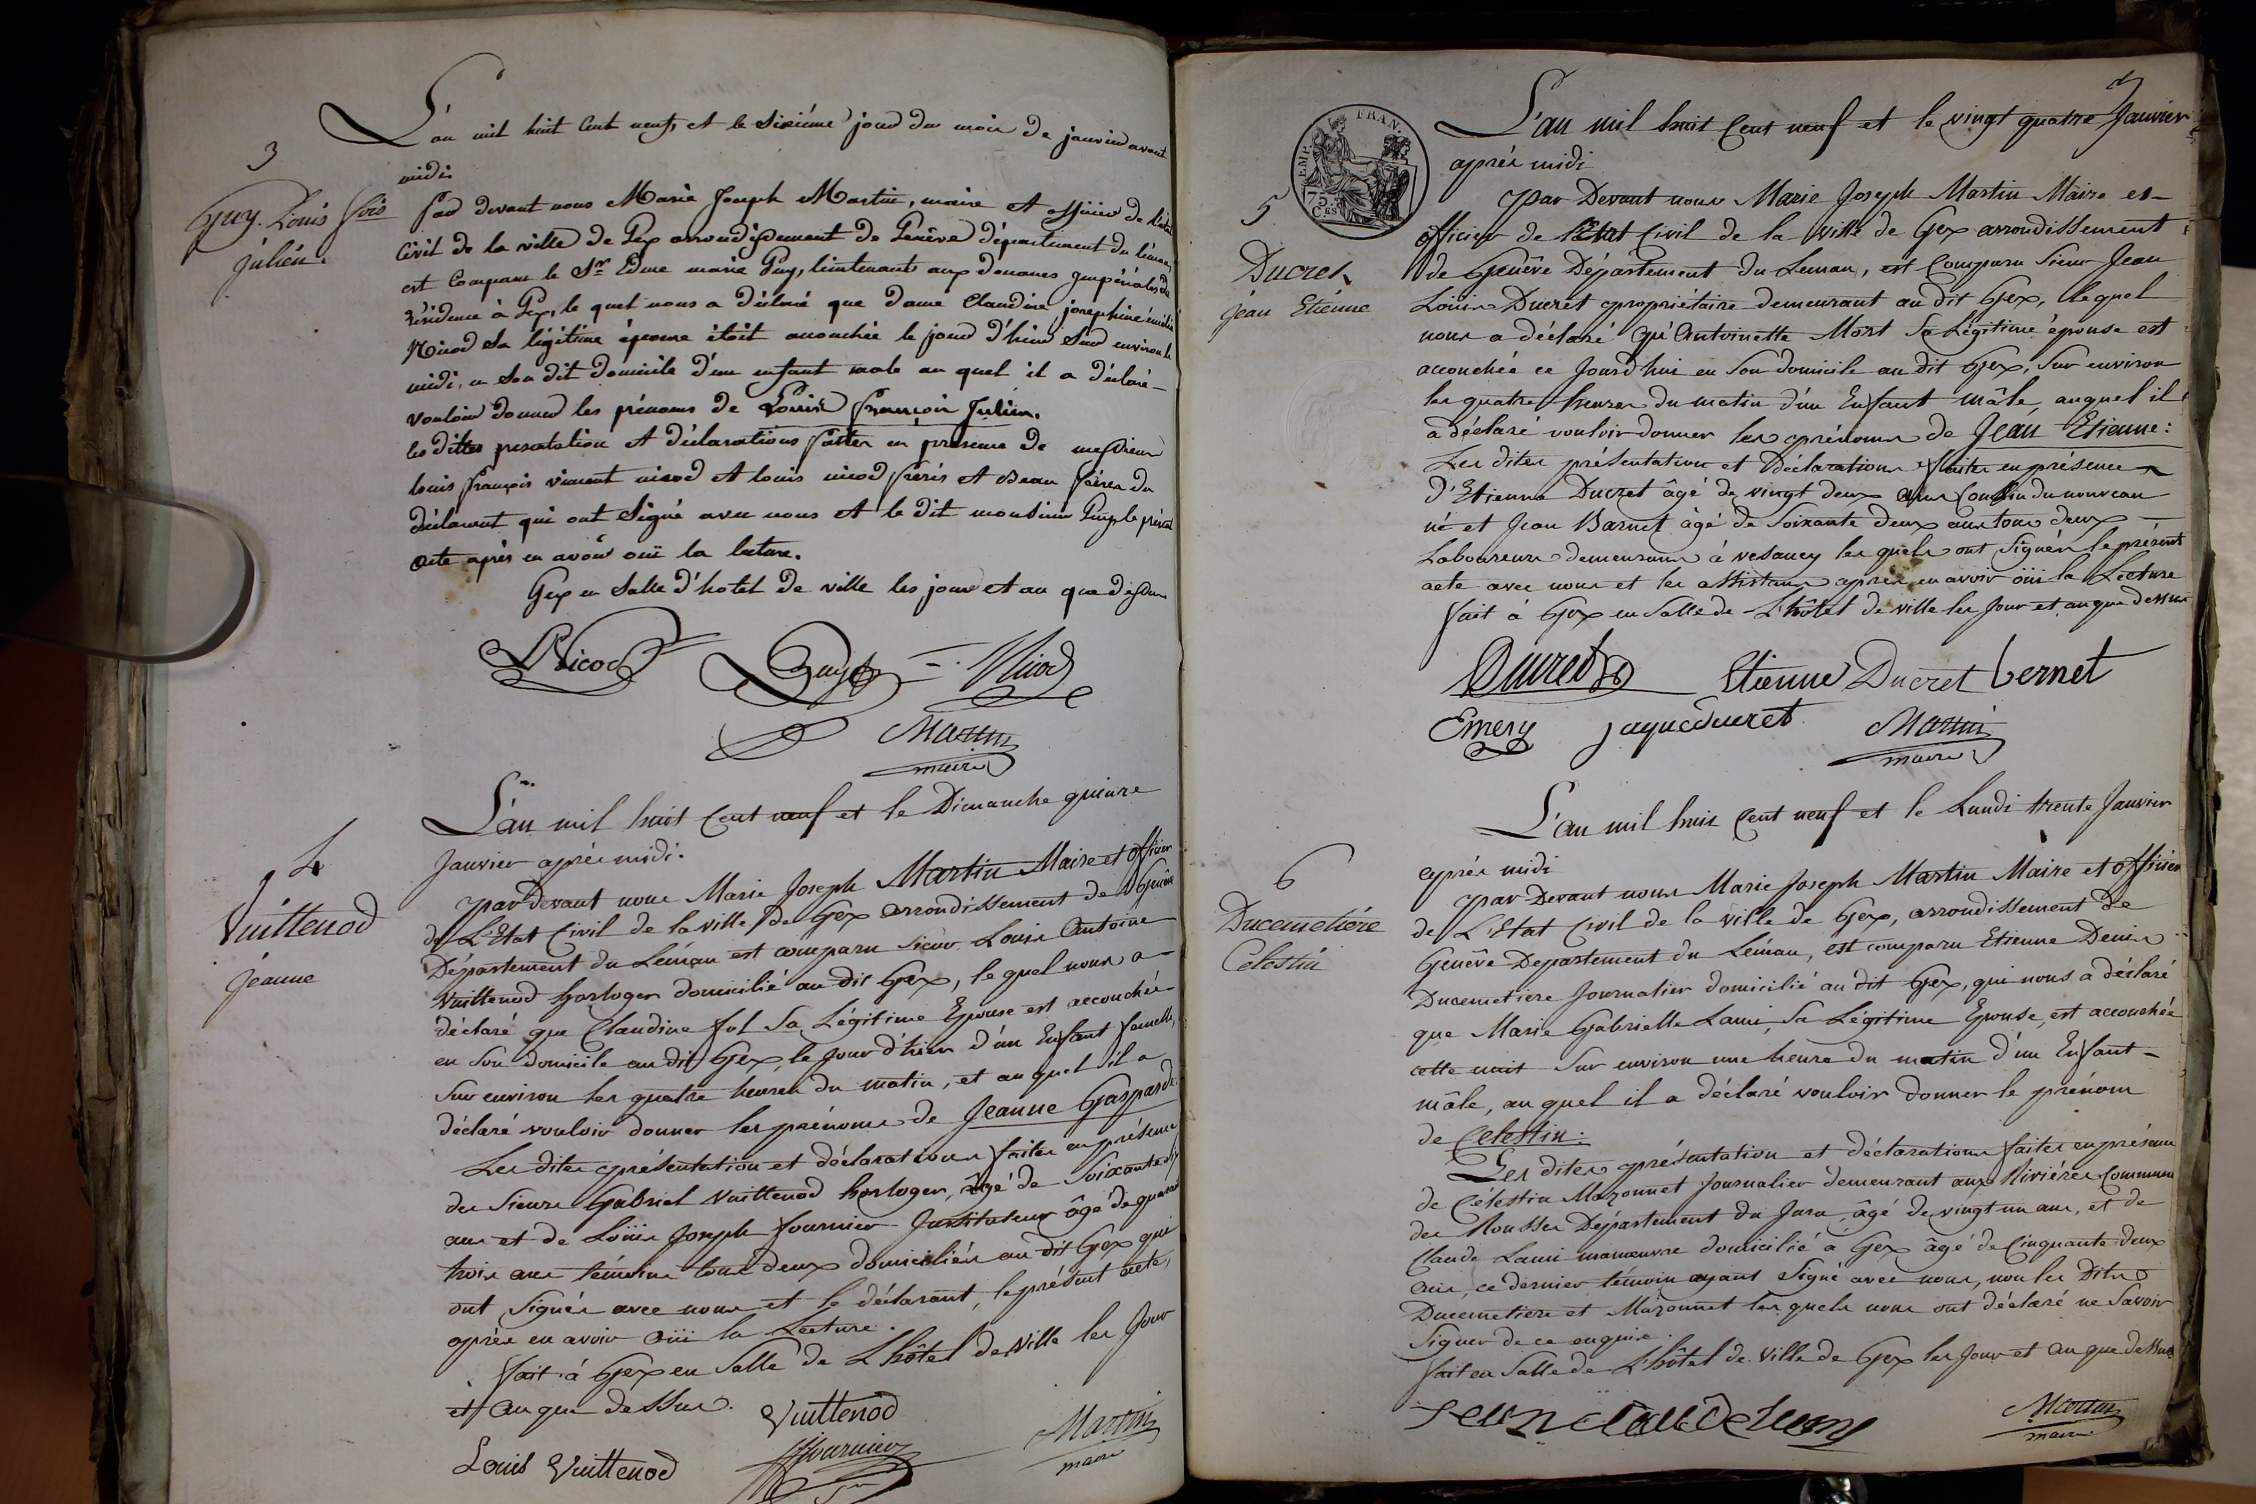 3
Guy. Louis fois
julien.
L'an mil huit Cent neuf, et le sixième jour du mois de janvier avant
midi
Par devant nous Marie Joseph Martin, maire et officier de l'état
Civil de la ville de Gex arrondissement de Genève département du léman
est Comparu le Sr Edme marie Guy, lieutenant aux douanes impériales de
résidence à Gex, le quel nous a déclaré que dame Claudine josephine émilie
Nicod sa légitime épouse étoit accouchée le jour d'hier sur environ le
midi, en son dit domicile d'un enfant male au quel il a déclaré
vouloir donner les prénoms de Louis françois Julien.
les dittes presentation et déclarations faites en presence de messieurs
louis françois vincent nicod et louis nicod frères et Beau frères du
déclarant qui ont signé avec nous et le dit monsieur Guy le présent
acte après en avoir ouï la lecture.
Gex en salle d'hotel de ville les jour et an que dessus
LNicod Guy Nicod
Martin
maire
4
Vuittenod
jeanne
L'an mil huit Cent neuf et le Dimanche quinze
Janvier après midi.
par Devant nous Marie Joseph Martin Maire et officier
de L'Etat Civil de la ville de Gex arrondissement de Genève
Département du Léman est comparu sieur Louis Antoine
Vuittenod horloger domicilié au dit Gex, le quel nous a
déclaré que Claudine fol Sa Légitime Epouse est accouchée
en Son domicile au dit Gex, le jour d'hier d'un Enfant femelle,
Sur environ les quatre heures du matin, et au quel il a
déclaré vouloir donner les prénoms de Jeanne Gasparde
Les dites présentation et déclarations faites en présence
des Sieurs Gabriel Vuittenod horloger, âgé de Soixante dix
ans et de Loüis Joseph fournier Instituteur âgé de quarante
trois ans témoins tous deux domiciliés au dit Gex qui
ont Signés avec nous et le déclarant, le présent acte,
après en avoir oüi la Lecture.
fait à Gex en Salle de L'hôtel de Ville les Jour
et an que dessus. Vuittenod
Louis Vuittenod JFournier Martin
maire
3
EMP. FRAN.
75
Ces
5
Ducret
jean Etienne
L'an mil huit Cent neuf et le vingt quatre Janvier
après midi
par Devant nous Marie Joseph Martin Maire et
officier de l'Etat Civil de la Ville de Gex arrondissement
de Genêve Département du Leman, est Comparu Sieur Jean
Loüis Ducret propriétaire demeurant au dit Gex, le quel
nous a déclaré qu'Antoinette Mort Sa Légitime épouse est
accouchée ce Jourd'hui en Son domicile au dit Gex, Sur environ
les quatre heures du matin d'un Enfant mâle, auquel il
a déclaré vouloir donner les prénoms de Jean Etienne:
Les dites présentation et Déclaration faites en présence
d'Etienne Ducret âgé de vingt deux ans Cousin du nouveau
né et Jean Barnet âgé de Soixante deux ans tous deux
Laboureurs demeurans à vesancy les quels ont Signés le présent
acte avec nous et les assistans après en avoir öui la Lecture
fait à Gex en Salle de L'hôtel de ville les Jour et an que dessus
Ducret Etienne Ducret bernet
Emery jaque ducret Martin
maire
6
Ducemetiére
Celestin
L'an mil huit Cent neuf et le Lundi trente Janvier
après midi
par Devant nous Marie Joseph Martin Maire et officier
de L'Etat Civil de la ville de Gex, arrondissement de
Genêve Departement du Léman, est comparu Etienne Denis
Ducemetiere Journalier domicilié au dit Gex, qui nous a déclaré
que Marie Gabrielle Lami, Sa Légitime Epouse, est accouchée
cette nuit Sur environ une heure du matin d'un Enfant
mâle, au quel il a déclaré vouloir donner le prénom
de Celestin:
Les dites présentation et déclarations faites en présence
de Célestin Mazonnet Journalier demeurant aux Riviéres Commune
des Rousses Département du Jura, âgé de vingt un ans, et de
Claude Lami manoeuvre domicilié a Gex âgé de Cinquante deux
ans, ce dernier témoin ayant Signé avec nous, non les Dits
Ducemetiere et Mazonnet les quels nous ont déclaré ne Savoir
Signer de ce enquis.
fait en Salle de L'hôtel de Ville de Gex les Jour et an que dessus
Martin
maire